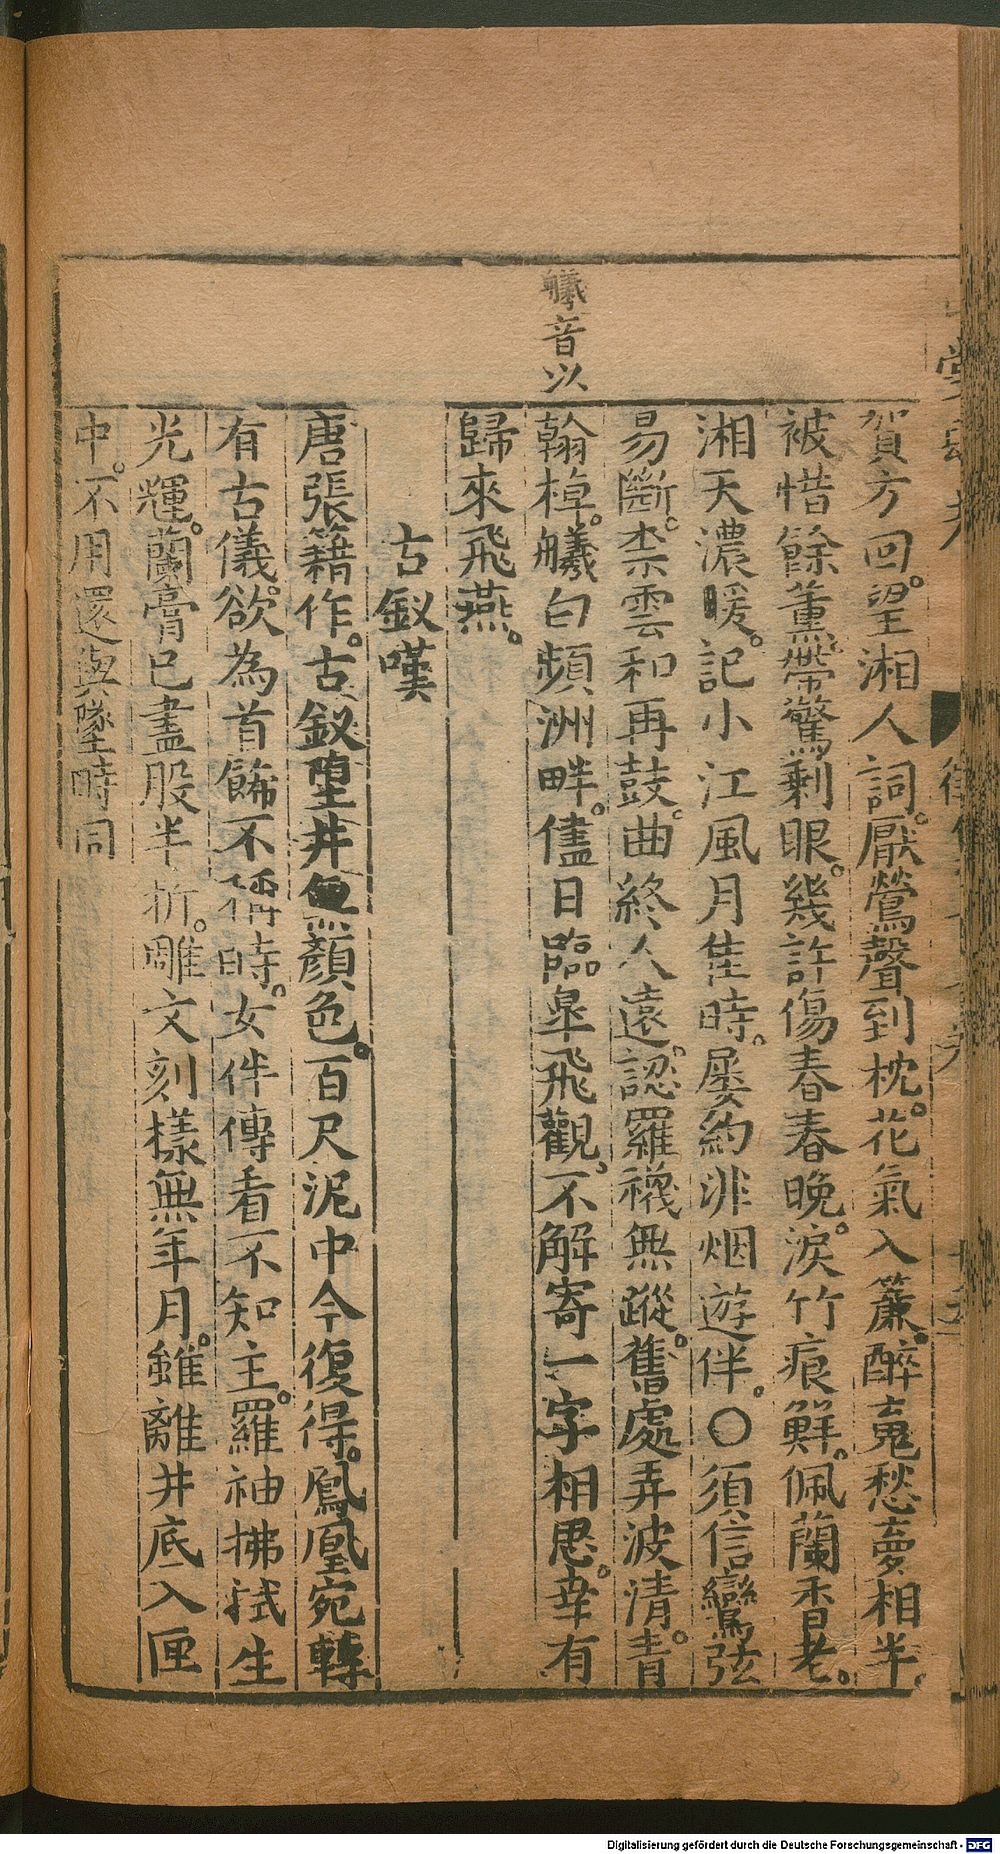 賀方回。望湘人詞。厭鶯聲到枕。花氣入簾。醉䰟愁夢相半。
被惜餘薫。帶驚剩眼。幾許傷春春晚。淚竹痕鮮。佩蘭香老。
湘天濃暖。記小江風月隹時。屡約非烟遊伴。○須信鸞弦
易斷。柰雲和再鼓。曲終人遠。認羅襪無蹤。舊處弄波清。青
翰棹。艤白蘋洲畔。儘日臨皋飛觀。不解寄一字相思。幸有
歸來飛燕。
艤音以
古釵嘆
唐張籍作。古釵墮井無顔色。百尺泥中今復得。鳳凰宛轉
有古儀。欲為首餙不稱時。女伴傳看不知主。羅袖拂拭生
光輝。蘭膏已盡股半折。雕文刻樣無年月。雖離井底入匣
中。不用還與墜時同
Digitalisierung gefördert durch die Deutsche Forschungsgemeinschaft - DFG